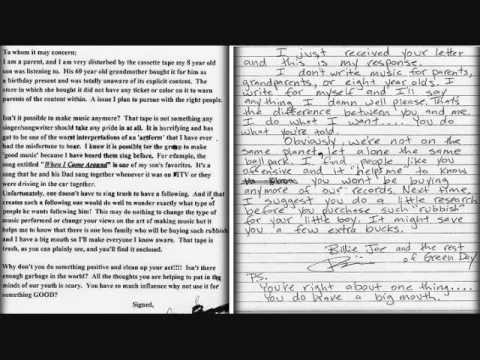 To whom it may concern:
I am a parent, and I am very disturbed by the cassette tape my 8 year old
son was listening to. His 60 year old grandmother bought it for him as
a birthday present and was totally unaware of its explicit content. The
store in which she bought it did not have any ticket or color on it to warn
parents of the content within. A issue I plan to pursue with the right people.
Isn't it possible to make music anymore? That tape is not something any
singer/songwriter should take any pride in at all. It is horrifying and has
got to be one of the worst interpitations of an 'artform' that I have ever
had the misfortune to hear. I know it is possible for the group to make
'good music' because I have heard them sing before. For example, the
song entitled "When I Come Around" is one of my son's favorites. It's a
song that he and his Dad sang together whenever it was on MTV or they
were driving in the car together.
Unfortunately, one doesn't have to sing trash to have a following. And if that
creates such a following one would do well to wonder exactly what type of
people he wants following him! This may do nothing to change the type of
music performed or change your views on the art of making music but it
helps me to know that there is one less family who will be buying such rubbish
and I have a big mouth so I'll make everyone I know aware. That tape is
trash, as you can plainly see, and you'll find it enclosed.
Why don't you do something positive and clean up your act!!!! Isn't there
enough garbage in the world? All the thoughts you are helping to put in the
minds of our youth is scary. You have so much influence why not use it for
something GOOD?
Signed,
I just received your letter
and this is my response.
I don't write music for parents,
grandparents, or eight year old's. I
write for myself and I'll say
anything I damn well please. That's
the difference between you and me.
I do what I want.... You do
what you're told.
Obviously, we're not on the
same planet let alone the same
ball park. I find people like you
offensive and it helps me to know
you won't be buying
anymore of our records. Next time,
I suggest you do a little research
before you purchase such "rubbish"
for your little boy. It might save
you a few extra bucks.
Billie Joe and the rest
of Green Day
P.S.
You're right about one thing....
You do have a big mouth.